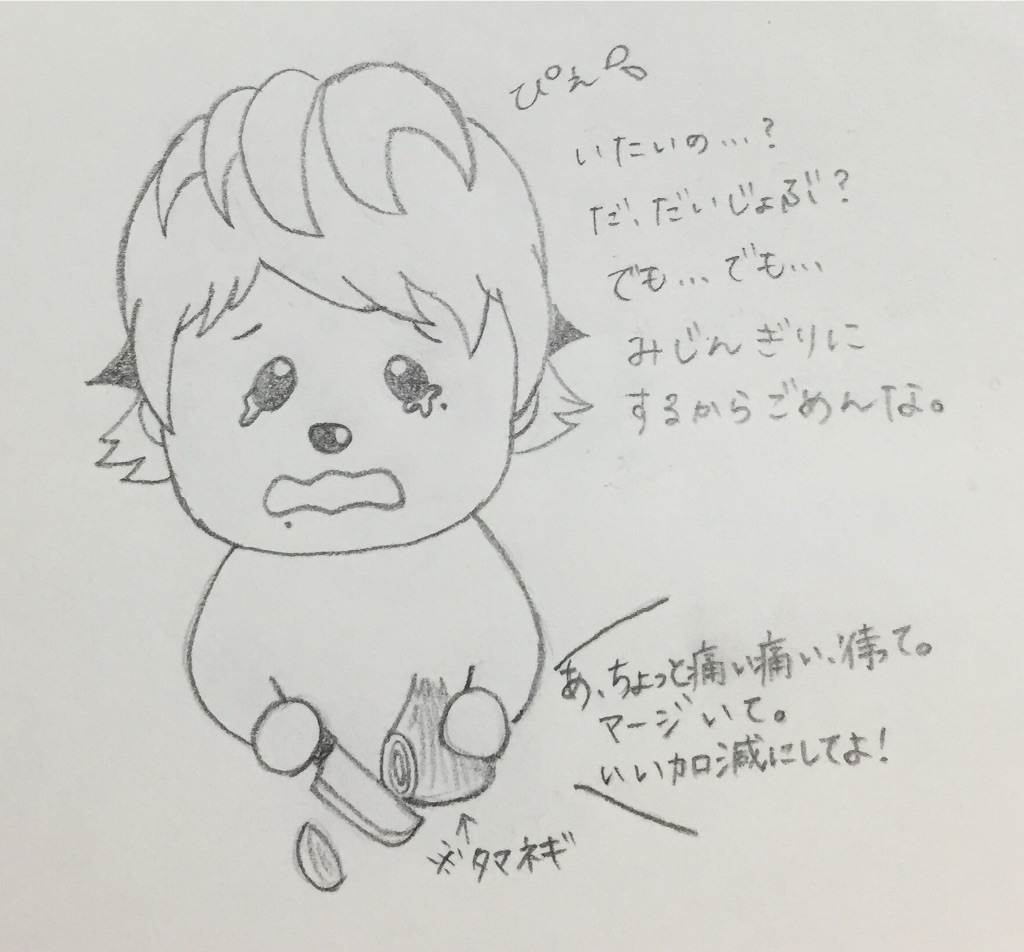 ぴえ
いたいの…?
だ、だいじょぶ?
でも…でも…
みじんぎりに
するからごめんな。
あ、ちょっと痛い痛い、待って。
マージいて。
いい加減にしてよ!
※タマネギ